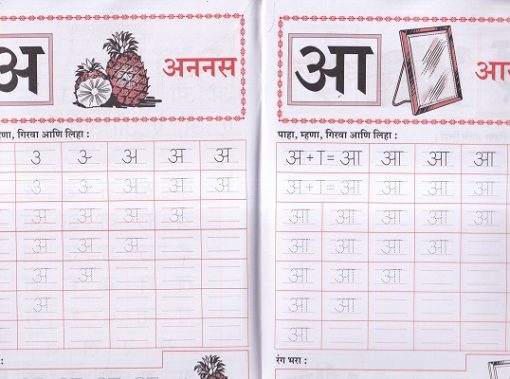 अ
अननस
म्हणा, गिरवा आणि लिहा :
३ अ अ अ
अ अ
अ अ अ अ
अ अ अ
अ अ
अ
आ
पाहा, म्हणा, गिरवा आणि लिहा :
अ + ा = आ आ आ आ
अ + ा = आ आ आ आ
आ आ आ आ आ
आ आ आ आ
आ आ आ
आ आ
आ
रंग भरा :